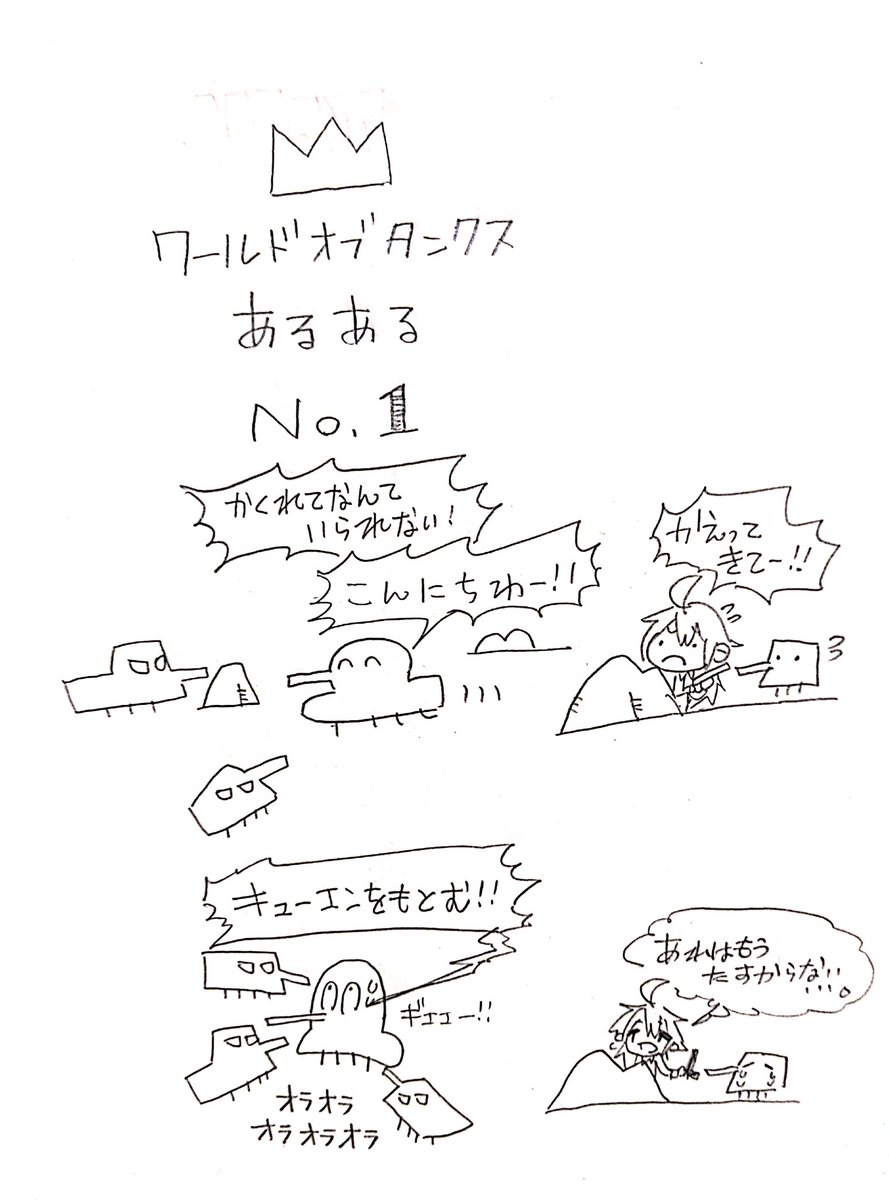 ワールドオブタンクス
あるある
No.1
かくれてなんて
いられない!
こんにちわー!!
かえって
きてー!!
キューエンをもとむ!!
ギエエー!!
オラオラ
オラオラオラ
あれはもう
たすからな…。